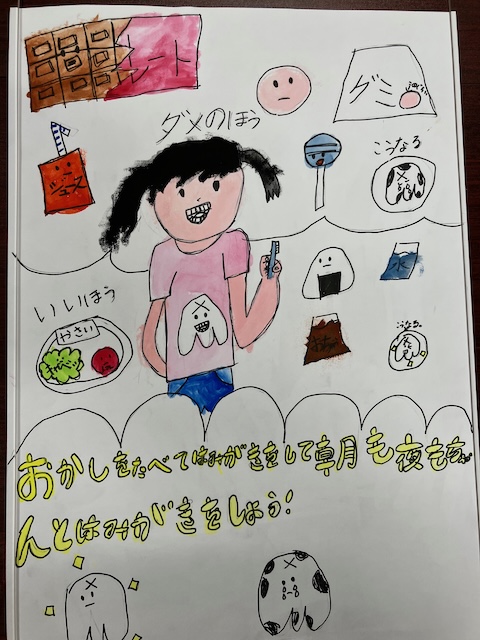 レート
グミ
ダメのほう
ジュース
こうなる
水
いいほう
やさい
キャベツ
お茶
こうなる
おかしをたべてはみがきをして朝も夜もちゃ
んとはみがきをしよう!